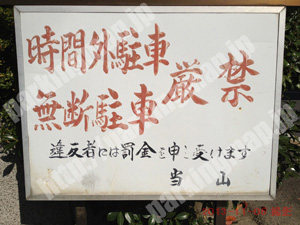 時間外駐車
無断駐車
厳禁
違反者には罰金を申し受けます
当山